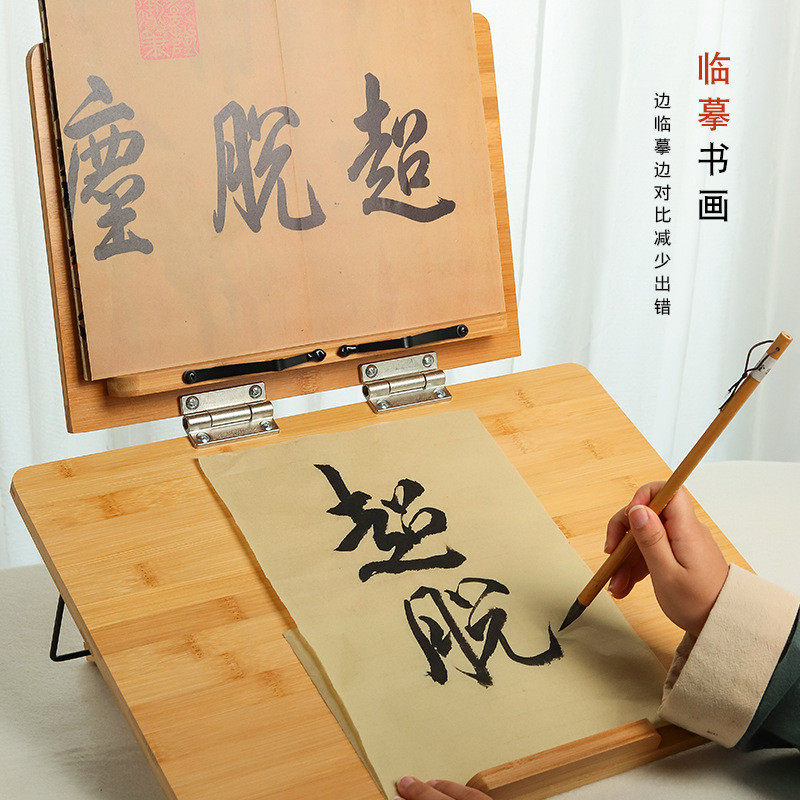 临摹书画
边临摹边对比减少出错
超脱尘
超
脱